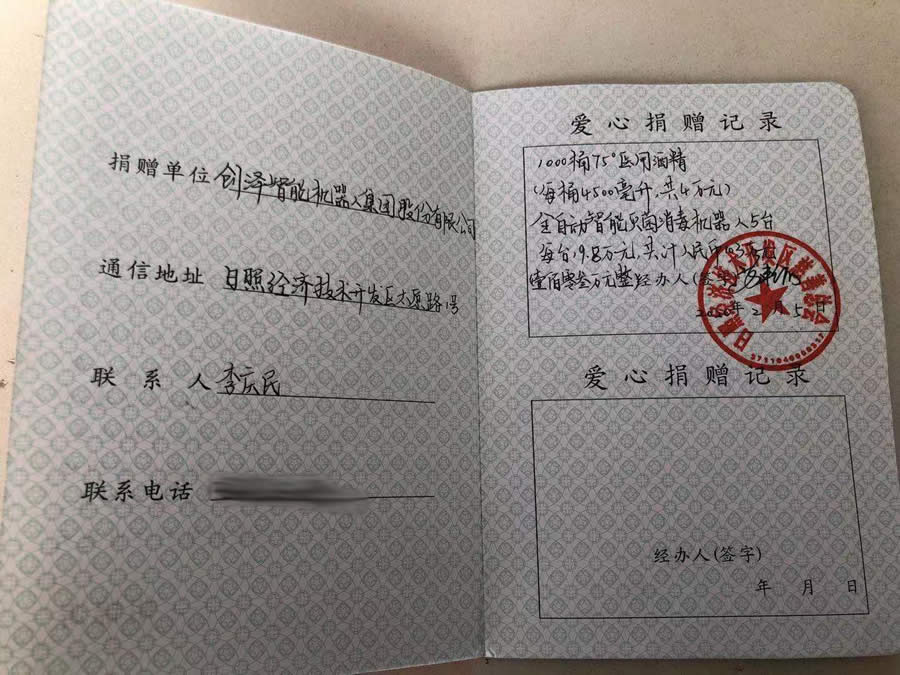 捐赠单位 创泽智能机器人集团股份有限公司
通信地址 日照经济技术开发区太原路 号
联系人 李庆民
联系电话
爱心捐赠记录
1000桶75°医用酒精
(每桶4500毫升,共4万元)
全自动智能灭菌消毒机器人5台
每台19.8万元,共计人民币
壹佰零叁万元整 经办人(签字)
2020年2月5日
3711040066337
爱心捐赠记录
经办人(签字)
年 月 日